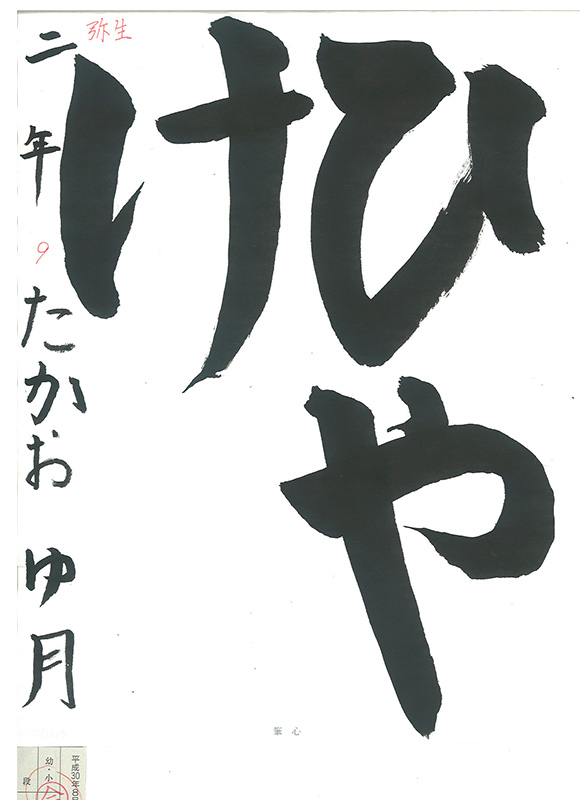 ひや
け
弥生
二年 9 たかお ゆ月
筆心
平成30年8月
幼・小
段